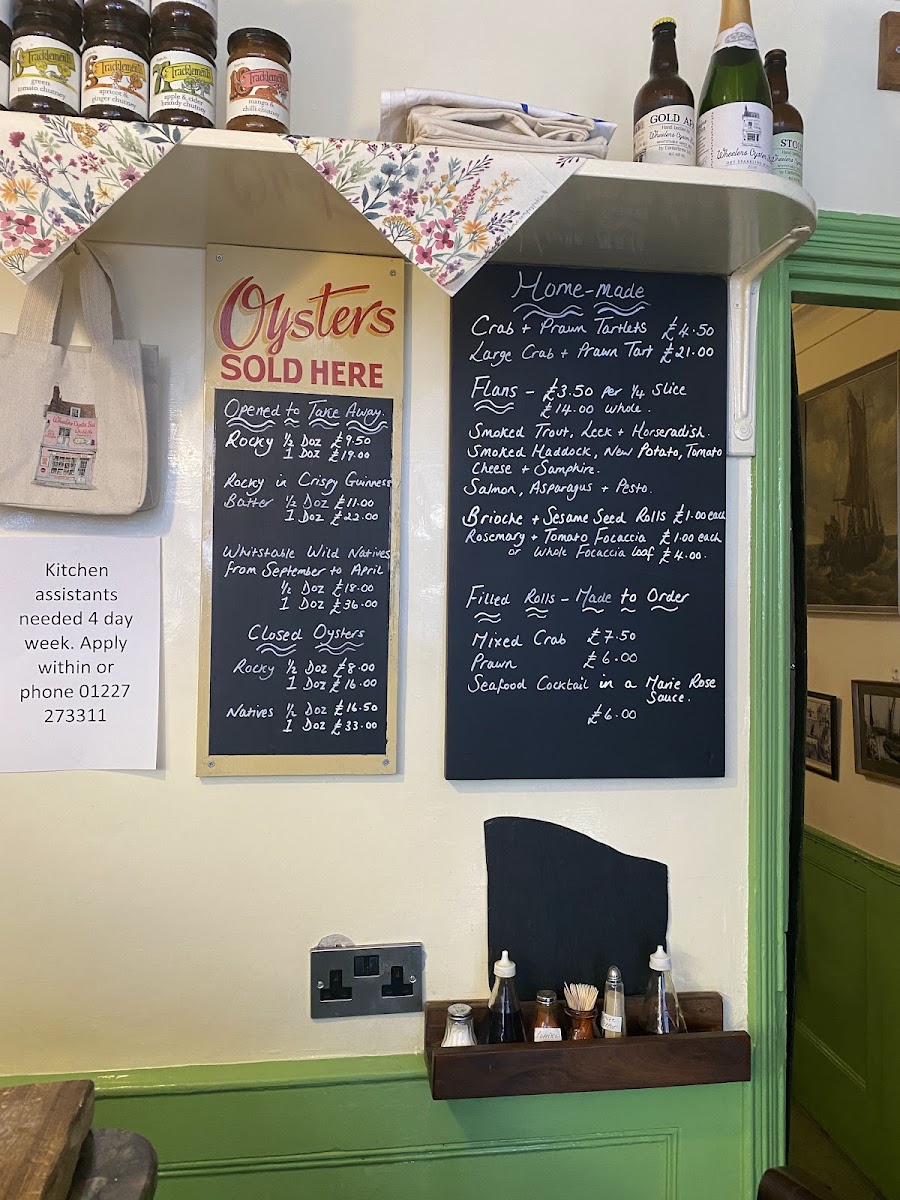 Tracklements
green
tomato chutney
Tracklements
apricot &
ginger chutney
Tracklements
apple & cider
brandy chutney
Tracklements
mango &
chilli chutney
GOLD
Wheelers Oyster
Wheelers Oyster
Oysters
SOLD HERE
Opened to Take Away.
Rocky ½ Doz £9.50
1 Doz £19.00
Rocky in Crispy Guinness
Batter ½ Doz £11.00
1 Doz £22.00
Whitstable Wild Natives
from September to April
½ Doz £18.00
1 Doz £36.00
Closed Oysters
Rocky ½ Doz £8.00
1 Doz £16.00
Natives ½ Doz £16.50
1 Doz £33.00
Home-made
Crab + Prawn Tartlets £4.50
Large Crab + Prawn Tart £21.00
Flans - £3.50 per ¼ Slice
£14.00 whole.
Smoked Trout, Leek + Horseradish.
Smoked Haddock, New Potato, Tomato
Cheese + Samphire.
Salmon, Asparagus + Pesto.
Brioche + Sesame Seed Rolls £1.00 each
Rosemary + Tomato Focaccia £1.00 each
or Whole Focaccia Loaf £4.00.
Filled Rolls - Made to Order
Mixed Crab £7.50
Prawn £6.00
Seafood Cocktail in a Marie Rose
Sauce.
£6.00
Kitchen
assistants
needed 4 day
week. Apply
within or
phone 01227
273311